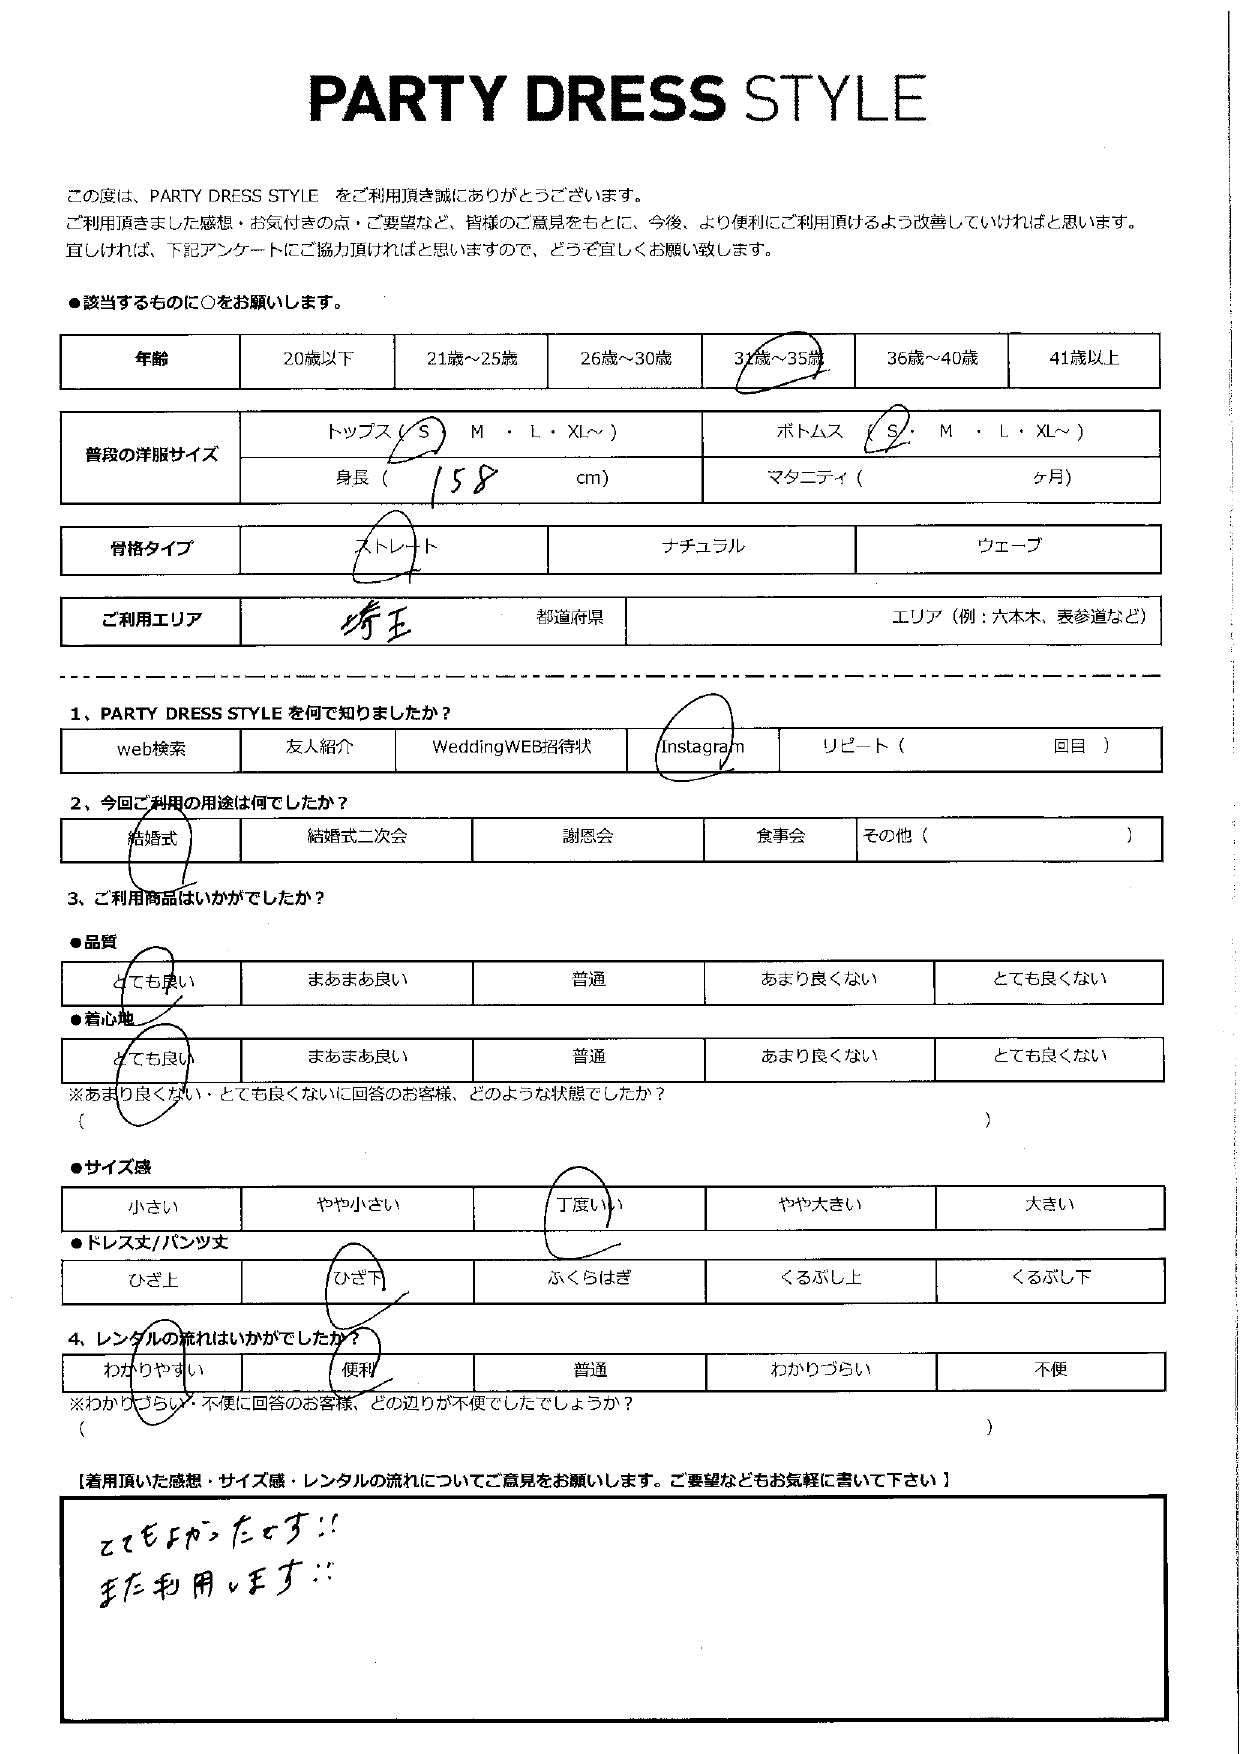 PARTY DRESS STYLE
この度は、PARTY DRESS STYLE をご利用頂き誠にありがとうございます。
ご利用頂きました感想・お気付きの点・ご要望など、皆様のご意見をもとに、今後、より便利にご利用頂けるよう改善していければと思います。
宜しければ、下記アンケートにご協力頂ければと思いますので、どうぞ宜しくお願い致します。
●該当するものに○をお願いします。
年齢 20歳以下 21歳～25歳 26歳～30歳 31歳～35歳 36歳～40歳 41歳以上
普段の洋服サイズ
トップス ( S ) M ・ L ・ XL～ ) ボトムス ( S ・ M ・ L ・ XL～ )
身長 ( 158 cm) マタニティ ( ヶ月)
骨格タイプ ストレート ナチュラル ウェーブ
ご利用エリア 埼玉 都道府県 エリア（例：六本木、表参道など）
1、PARTY DRESS STYLE を何で知りましたか？
web検索 友人紹介 WeddingWEB招待状 Instagram リピート（ 回目 ）
2、今回ご利用の用途は何でしたか？
結婚式 結婚式二次会 謝恩会 食事会 その他（ ）
3、ご利用商品はいかがでしたか？
●品質
とても良い まあまあ良い 普通 あまり良くない とても良くない
●着心地
とても良い まあまあ良い 普通 あまり良くない とても良くない
※あまり良くない・とても良くないに回答のお客様、どのような状態でしたか？
（ ）
●サイズ感
小さい やや小さい 丁度いい やや大きい 大きい
●ドレス丈/パンツ丈
ひざ上 ひざ下 ふくらはぎ くるぶし上 くるぶし下
4、レンタルの流れはいかがでしたか？
わかりやすい 便利 普通 わかりづらい 不便
※わかりづらい・不便に回答のお客様、どの辺りが不便でしたでしょうか？
（ ）
【着用頂いた感想・サイズ感・レンタルの流れについてご意見をお願いします。ご要望などもお気軽に書いて下さい 】
とてもよかったです!!
また利用します!!